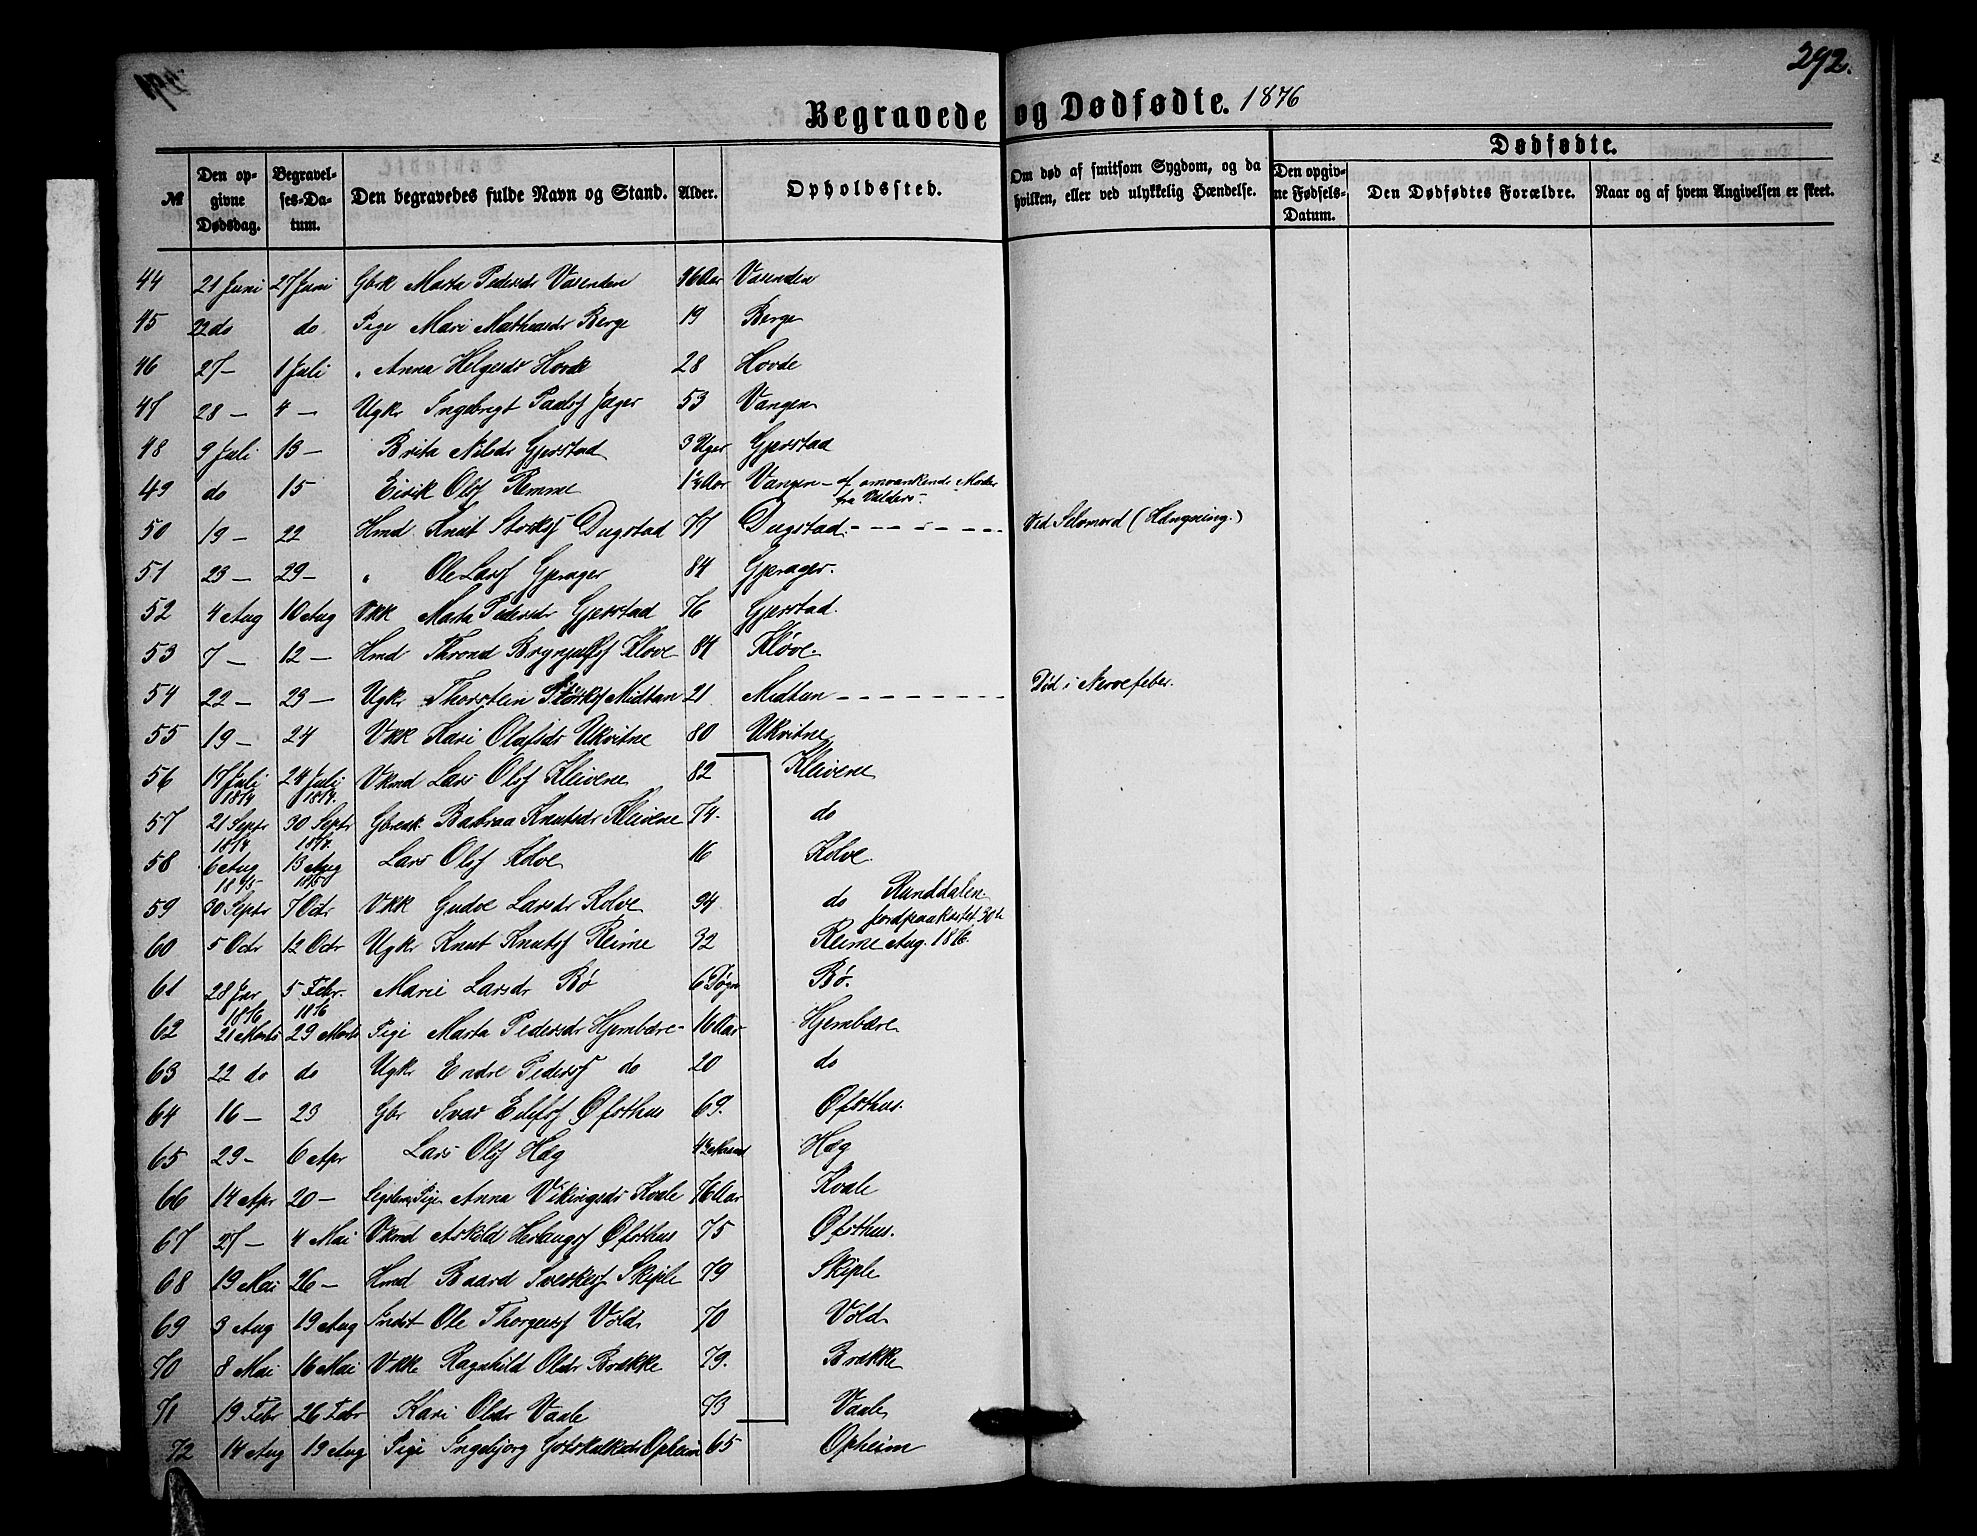 292.
Begravede og Dødfødte. 1876
Dødfødte.
№ Den opgivne Dødsdag. Begravelses-Datum. Den begravedes fulde Navn og Stand. Alder. Opholdssted. Om død af smitsom Sygdom, og da hvilken, eller ved ulykkelig Hændelse. Den opgivne Fødsels-Datum. Den Dødfødtes Forældre. Naar og af hvem Angivelsen er skeet.
44 21 Juni 27 Juni Gbrk Marta Pedersdr Vasenden 36 Aar Vasenden
45 22 do do Pige Mari Mathiasdr Berge 19 Berge
46 27 – 1 Juli " Anna Helgesdr Hovde 28 Hovde
47 28 – 4 – Ugkr Ingebrigt Paals Jager 53 Vangen
48 9 Juli 13 – Brita Nilsdr Gjerstad 3 Uger Gjerstad
49 do 15 Eirik Ols Remme Aar Vangen – af omvankende Moder
fra Valders –
50 19 – 22 Hmd Knut Storks Dugstad 77 Dugstad. – – – – – – Ved Selvmord (Hængning.)
51 23 – 29 – " Ole Lars Gjerager 84 Gjerager.
52 4 Aug 10 Aug Vkk Marta Pedersdr Gjerstad 76 Gjerstad.
53 7 – 12 – Hmd Thrond Brynjulfs Kløve 84 Kløve.
54 22 – 23 – Ugkr Thorstein Størks Midtun 21 Midtun – – – – – – Død i Nervefeber.
55 19 – 24 Vkk Kari Olafsdr Ukvitne 80 Ukvitne
56 17 Juli 24 Juli Vkmd Lars Ols Kleivene 82 Kleivene
1874 1874.
57 21 Septr 30 Septr Gbrek Barbraa Knutsdr Kleivene 74. do
1874 1874.
58 6 Aug 13 Aug Lars Ols Kolve 16 Kolve.
1875 1875
59 30 Septr 7 Octr Vkk Gudve Larsdr Kolve 94 do Runddalen.
jordpaakastet 30te
60 5 Octr 12 Octr Ugkr Knut Knuts Reime 32 Reime Aug. 1876.
61 28 Jnr 5 Febr. Marie Larsdr Bø 6 Døgn Bø.
1876 1876
62 21 Marts 29 Marts Pige Marta Pedersdr Hjembære – 16 Aar Hjembære
63 22 do do Ugkr Endre Peders do 20 do
64 16 – 23 Gbr Ivar Eilifs Øfsthus 69. Øfsthus.
65 29 – 6 Apr Lars Ols Hæg Hæg
66 14 Apr 20 – Pige Anna Vikingsdr Kvale 76 Aar Kvale
67 27 – 4 Mai Vkmd Askild Herlaugs Øfsthus 75 Øfsthus.
68 19 Mai 26 – Hmd Baard Sverkes Skiple 79 Skiple
69 3 Aug 19 Aug Indst Ole Thorgers Vold 70 Vold
70 8 Mai 16 Mai Vkke Ragnhild Olsdr Brække 79. Brække
71 19 Febr 26 Febr Kari Olsdr Vaale 73 Vaale
72 14 Aug 19 Aug Pige Ingebjorg Gotskalksdr Opheim 65 Opheim